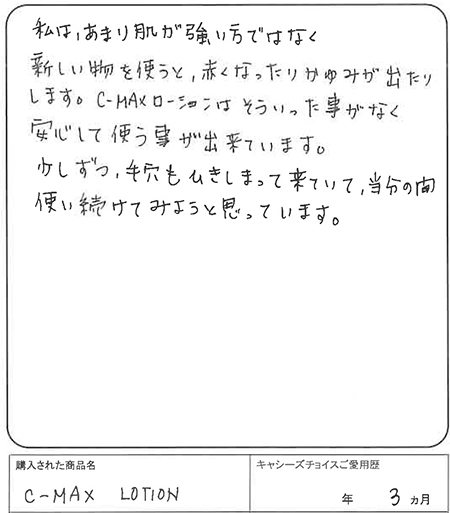 私は,あまり肌が強い方ではなく
新しい物を使うと,赤くなったりかゆみが出たり
します。C-MAXローションはそういった事がなく
安心して使う事が出来ています。
少しずつ,毛穴もひきしまって来ていて,当分の間
使い続けてみようと思っています。
購入された商品名
キャシーズチョイスご愛用歴
C-MAX LOTION
年 3 ヵ月